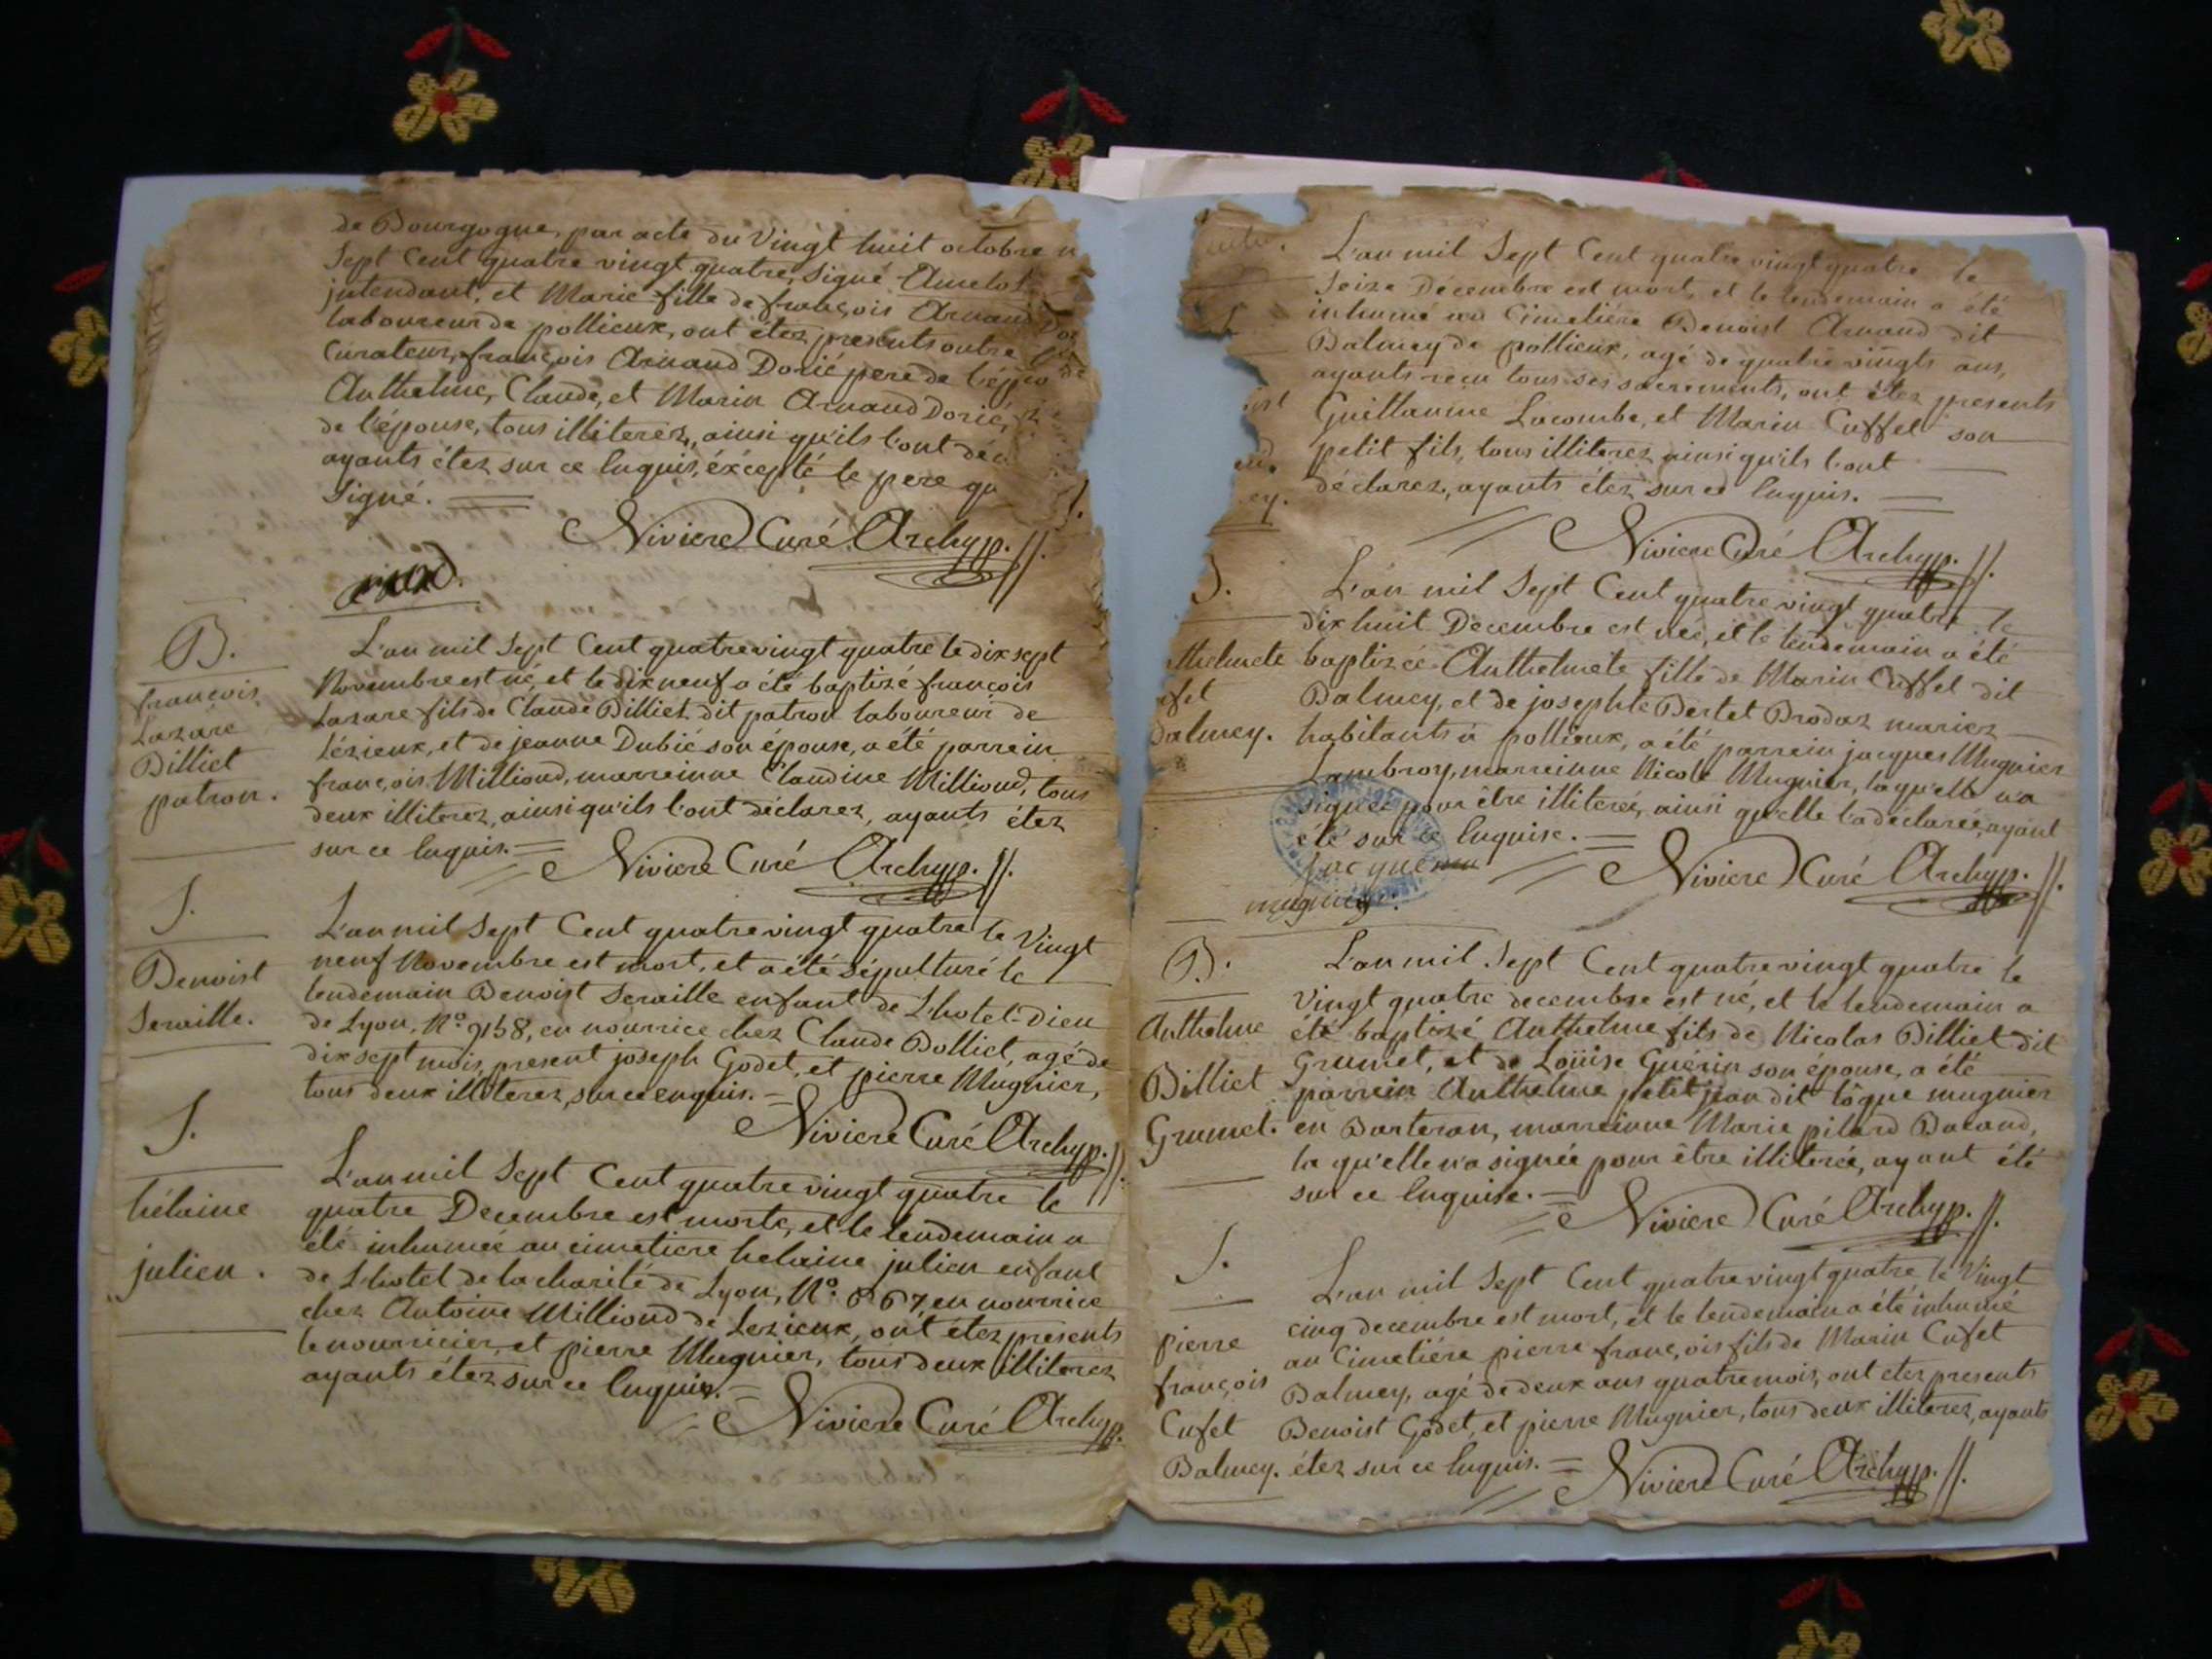 de Bourgogne, par acte du Vingt huit octobre
Sept Cent quatre vingt quatre, Signé Amelot
jntendant, et Marie fille de françois Arnaud
laboureur de pollieux, ont étez presents outre
Curateur, françois Arnaud Dorié pere de
Anthelme, Claude, et Marin Arnaud Dorié,
de l'épouse, tous illiterez, ainsi qu'ils l'ont
ayants étez sur ce Enquis, éxcepté le pere
Signé.
Niviere Curé Archyp.
B.
françois
Lazare
Billiet
patron.
L'an mil Sept Cent quatre vingt quatre le dix sept
Novembre est né, et le dix neuf a été baptizé françois
Lazare fils de Claude Billiet dit patron laboureur de
Lézieux, et de jeanne Dubié son épouse, a été parrein
françois Milliond, marreinne Claudine Milliond, tous
deux illiterez, ainsi qu'ils l'ont déclarez, ayants étez
sur ce Enquis.
Niviere Curé Archyp.
S.
Benoist
Seraille.
L'an mil Sept Cent quatre vingt quatre le Vingt
neuf Novembre est mort, et a été sépulturé le
lendemain Benoist Seraille enfant de L'hotel-Dieu
de Lyon, N.o 9158, en nourrice chez Claude Bolliet, agé de
dix sept mois, present joseph Godet, et pierre Mugnier,
tous deux illiterez, sur ce enquis.
Niviere Curé Archyp.
S.
hélaine
julien.
L'an mil Sept Cent quatre vingt quatre le
quatre Decembre est morte, et le lendemain a
été inhumée au cimetiere helaine julien enfant
de L'hotel de la charité de Lyon, N.o 667, en nourrice
chez Antoine Milliond de Lezieux, ont étez presents
le nourricier, et pierre Mugnier, tous deux illiterez
ayants étez sur ce Enquis.
Niviere Curé Archyp.
L'an mil Sept Cent quatre vingt quatre le
Seize Décembre est mort, et le lendemain a été
inhumé au Cimetiére Benoist Arnaud dit
Balmey de pollieux, agé de quatre vingts ans,
ayants reçu tous ses sacrements, ont étez presents
Guillaume Lacombe, et Marin Cuffet son
petit fils, tous illiterez ainsi qu'ils l'ont
déclarez, ayants étez sur ce Enquis.
Niviere Curé Archyp.
S.
thelmete
ufet
Balmey.
L'an mil Sept Cent quatre vingt quatre le
dix huit Decembre est née, et le lendemain a été
baptizée Anthelmete fille de Marin Cuffet dit
Balmey, et de josephte Bertet Brodaz mariez
habitants à pollieux, a été parrein jacques Mugnier
Lambroy, marreinne Nicole Mugnier, laqu'elle n'a
signée pour être illiterée, ainsi qu'elle l'a déclarée, ayant
été sur ce Enquise.
Niviere Curé Archyp.
mugnier
B.
Anthelme
Billiet
Grumet.
L'an mil Sept Cent quatre vingt quatre le
Vingt quatre decembre est né, et le lendemain a
été baptizé Anthelme fils de Nicolas Billiet dit
Grumet, et de Loüise Guérin son épouse, a été
parrein Anthelme petit jean dit tôque mugnier
en Barteran, marreinne Marie pilard Bavand,
la qu'elle n'a signée pour être illiterée, ayant été
sur ce Enquise.
Niviere Curé Archyp.
S.
pierre
françois
Cufet
Balmey.
L'an mil Sept Cent quatre vingt quatre le Vingt
cinq decembre est mort, et le lendemain a été inhumé
au Cimetiére pierre françois fils de Marin Cufet
Balmey, agé de deux ans quatre mois, ont etez presents
Benoist Godet, et pierre Mugnier, tous deux illiterez, ayants
étez sur ce Enquis.
Niviere Curé Archyp.